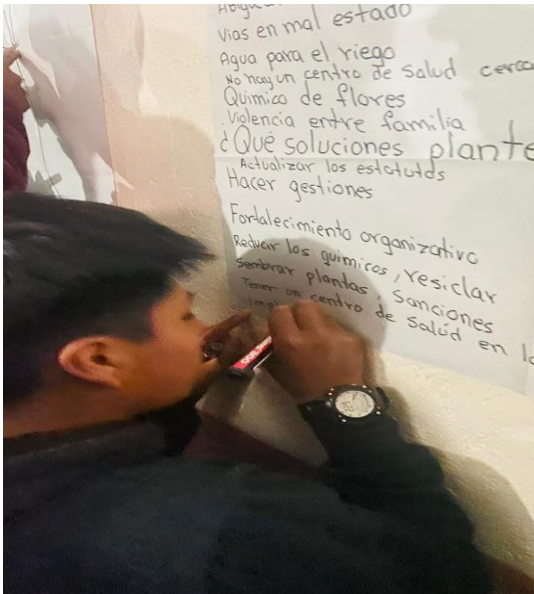 Vias en mal estado
Agua para el riego
No hay un centro de salud cerca
Quimico de flores
Violencia entre familia
¿Qué soluciones plante
Actualizar los estatutds
Hacer gestiones
Fortalecimiento organizativo
Reducir los quimicos, resiclar
Sembrar plantas, Sanciones
Tener un centro de Salúd en la